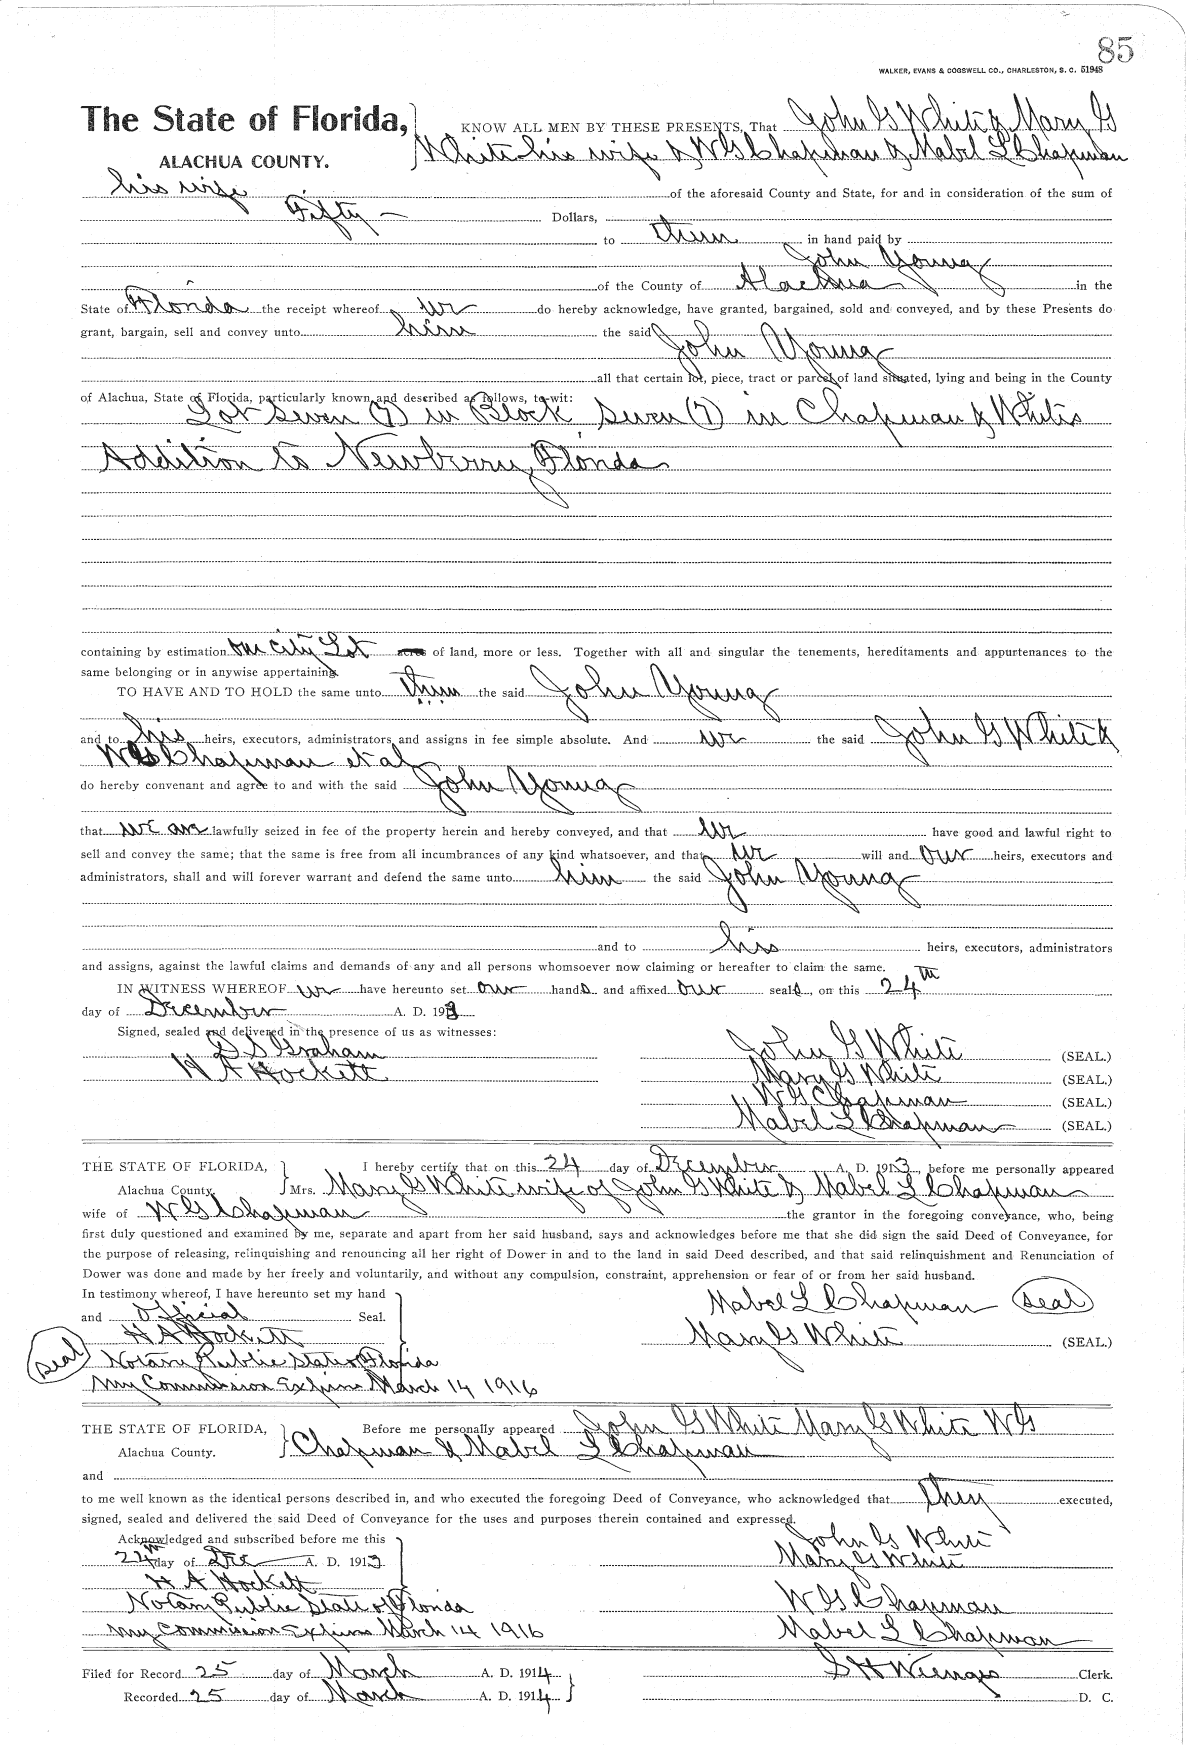 85
WALKER, EVANS & COGSWELL CO., CHARLESTON, S. C. 51948
The State of Florida, KNOW ALL MEN BY THESE PRESENTS, That John G White & Mary G
ALACHUA COUNTY. White his wife & W G Chapman & Mabel L Chapman
his wife of the aforesaid County and State, for and in consideration of the sum of
Fifty — Dollars,
to them in hand paid by
John Young
of the County of Alachua in the
State of Florida the receipt whereof we do hereby acknowledge, have granted, bargained, sold and conveyed, and by these Presents do
grant, bargain, sell and convey unto him the said John Young
all that certain lot, piece, tract or parcel of land situated, lying and being in the County
of Alachua, State of Florida, particularly known and described as follows, to-wit:
Lot Seven (7) in Block Seven (7) in Chapman & Whites
Addition to Newberry, Florida
containing by estimation one city Lot acres of land, more or less. Together with all and singular the tenements, hereditaments and appurtenances to the
same belonging or in anywise appertaining.
TO HAVE AND TO HOLD the same unto them the said John Young
and to his heirs, executors, administrators, and assigns in fee simple absolute. And we the said John G White &
W G Chapman et al
do hereby convenant and agree to and with the said John Young
that we are lawfully seized in fee of the property herein and hereby conveyed, and that we have good and lawful right to
sell and convey the same; that the same is free from all incumbrances of any kind whatsoever, and that we will and our heirs, executors and
administrators, shall and will forever warrant and defend the same unto him the said John Young
and to his heirs, executors, administrators
and assigns, against the lawful claims and demands of any and all persons whomsoever now claiming or hereafter to claim the same.
IN WITNESS WHEREOF we have hereunto set our hands and affixed our seals, on this 24th
day of December A. D. 1913
Signed, sealed and delivered in the presence of us as witnesses:
S S Graham John G White (SEAL.)
H A Hockett Mary G White (SEAL.)
W G Chapman (SEAL.)
Mabel L Chapman (SEAL.)
THE STATE OF FLORIDA, I hereby certify that on this 24 day of December A. D. 1913, before me personally appeared
Alachua County. Mrs. Mary G White wife of John G White & Mabel L Chapman
wife of W G Chapman the grantor in the foregoing conveyance, who, being
first duly questioned and examined by me, separate and apart from her said husband, says and acknowledges before me that she did sign the said Deed of Conveyance, for
the purpose of releasing, relinquishing and renouncing all her right of Dower in and to the land in said Deed described, and that said relinquishment and Renunciation of
Dower was done and made by her freely and voluntarily, and without any compulsion, constraint, apprehension or fear of or from her said husband.
In testimony whereof, I have hereunto set my hand
and Official Seal. Mabel L Chapman seal
H A Hockett Mary G White (SEAL.)
seal Notary Public State of Florida
My Commission Expires March 14 1916
THE STATE OF FLORIDA, Before me personally appeared John G White Mary G White W G
Alachua County. Chapman & Mabel L Chapman
and
to me well known as the identical persons described in, and who executed the foregoing Deed of Conveyance, who acknowledged that they executed,
signed, sealed and delivered the said Deed of Conveyance for the uses and purposes therein contained and expressed.
Acknowledged and subscribed before me this John G White
24th day of Dec A. D. 1913 Mary G White
H A Hockett W G Chapman
Notary Public State of Florida Mabel L Chapman
My Commission Expires March 14 1916
Filed for Record 25 day of March A. D. 1914 S H Wienges Clerk.
Recorded 25 day of March A. D. 1914 D. C.